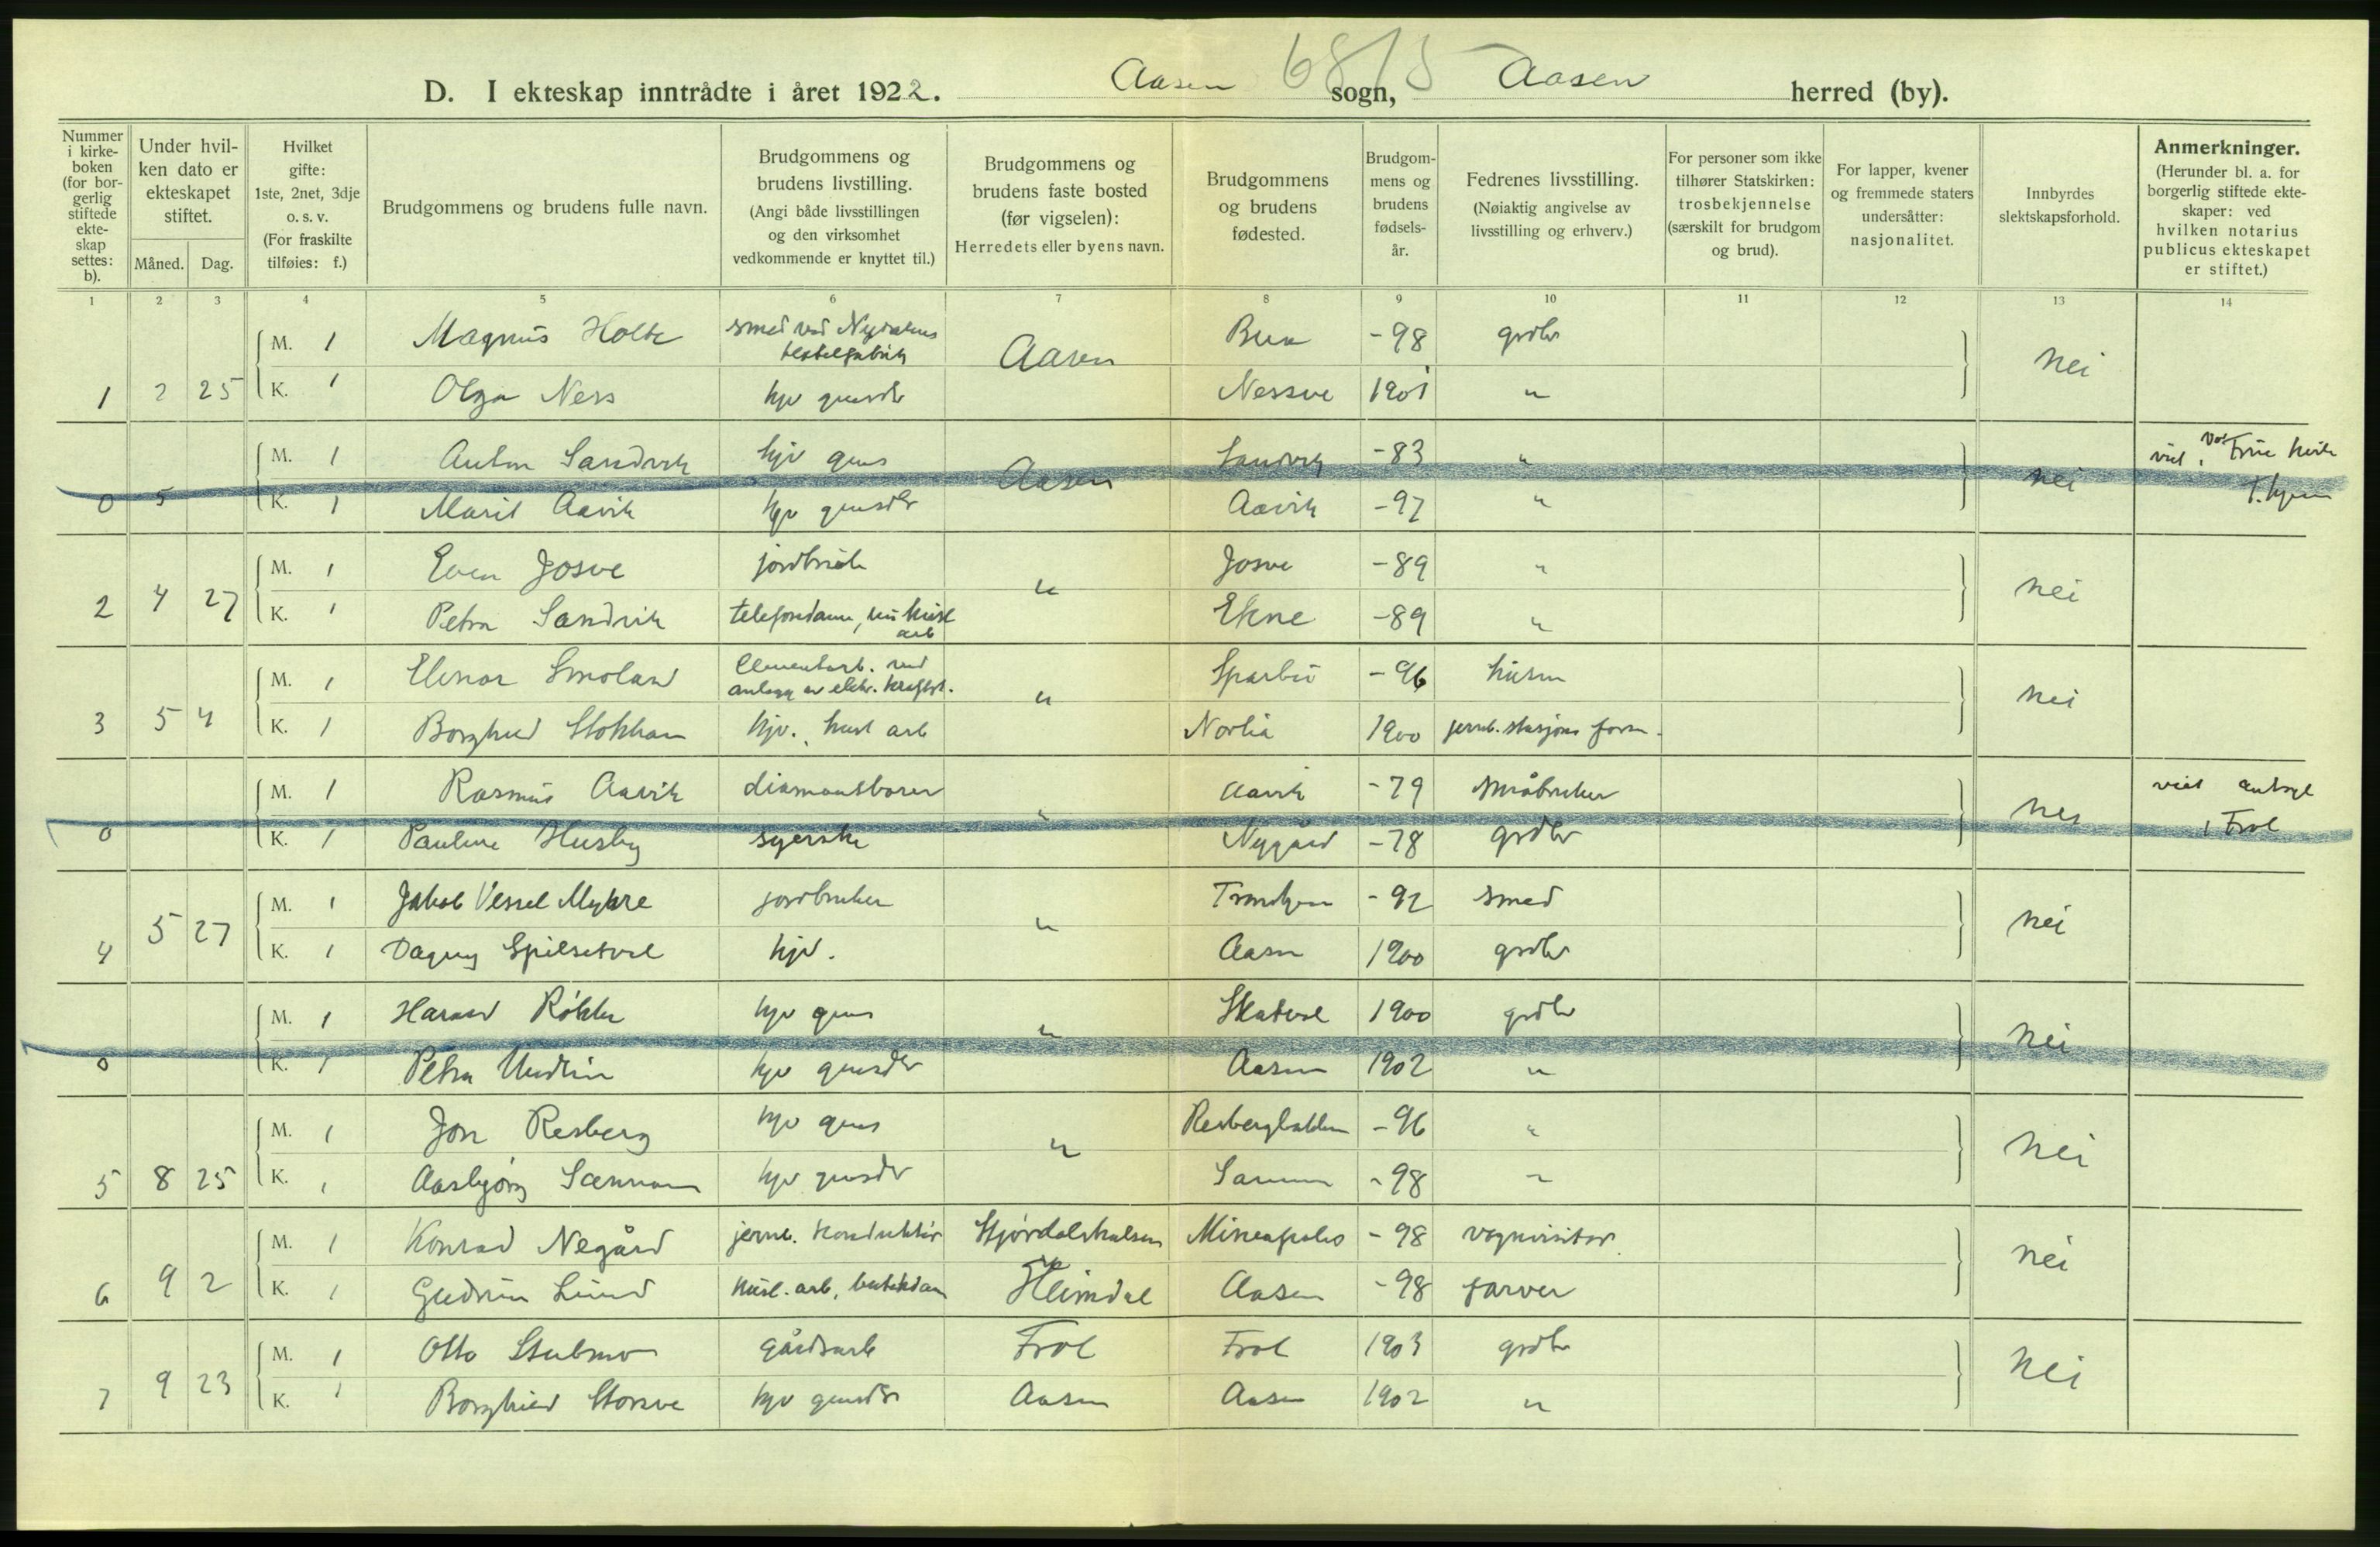 D. I ekteskap inntrådte i året 1922. Aasen sogn, Aasen herred (by).
6815
Nummer i kirkeboken (for borgerlig stiftede ekteskap settes: b).
Under hvilken dato er ekteskapet stiftet.
Måned. Dag.
Hvilket gifte: 1ste, 2net, 3dje o. s. v. (For fraskilte tilføies: f.)
Brudgommens og brudens fulle navn.
Brudgommens og brudens livstilling. (Angi både livsstillingen og den virksomhet vedkommende er knyttet til.)
Brudgommens og brudens faste bosted (før vigselen): Herredets eller byens navn.
Brudgommens og brudens fødested.
Brudgommens og brudens fødselsår.
Fedrenes livsstilling. (Nøiaktig angivelse av livsstilling og erhverv.)
For personer som ikke tilhører Statskirken: trosbekjennelse (særskilt for brudgom og brud).
For lapper, kvener og fremmede staters undersåtter: nasjonalitet.
Innbyrdes slektskapsforhold.
Anmerkninger. (Herunder bl. a. for borgerlig stiftede ekteskaper: ved hvilken notarius publicus ekteskapet er stiftet.)
1 2 3 4 5 6 7 8 9 10 11 12 13 14
M. 1 Magnus Holte smed ved Aasen -98 grdbr nei
1 2 25 K. 1 Olga Ness hjv Nessve 1901 "
M. 1 Anton Sandvik hjv Aasen Sandvik -83 " nei
0 5 K. 1 Marit Aavik hjv Aavik -97 "
M. 1 Even Josve jordbruk " Josve -89 " nei
2 4 27 K. 1 Petra Sandvik telefondame, Ekne -89 "
M. 1 Elenor Smolan anlegg av elektr. " Sparbu -96 husm nei
3 5 4 K. 1 Borghild Stokkan hjv. husl arb Norlia 1900 jernb. stasjons form.
M. 1 Rasmus Aavik diamantborer " Aavik -79 småbruker nei
0 K. 1 Pauline Husby syerske Nygård -78 grdbr i Frol
M. 1 Jakob Vessel Myhre jordbruker " Trondhjem -92 smed nei
4 5 27 K. 1 Dagny hjv. Aasen 1900 grdbr
M. 1 Harald hjv " 1900 grdbr nei
0 K. 1 Petra hjv Aasen 1902 "
M. 1 Jon Resberg hjv " -96 " nei
5 8 25 K. 1 Aasbjørg hjv -98 "
M. 1 Konrad Negård jernb. konduktør Stjørdalshalsen Mineapolis -98 vognvisitør nei
6 9 2 K. 1 Gudrun Lund husl. arb, butikdam Heimdal Aasen -98 farver
M. 1 Otto Stubmo gårdsarb Frol Frol 1903 grdbr nei
7 9 23 K. 1 Borghild Storsve hjv Aasen Aasen 1902 "